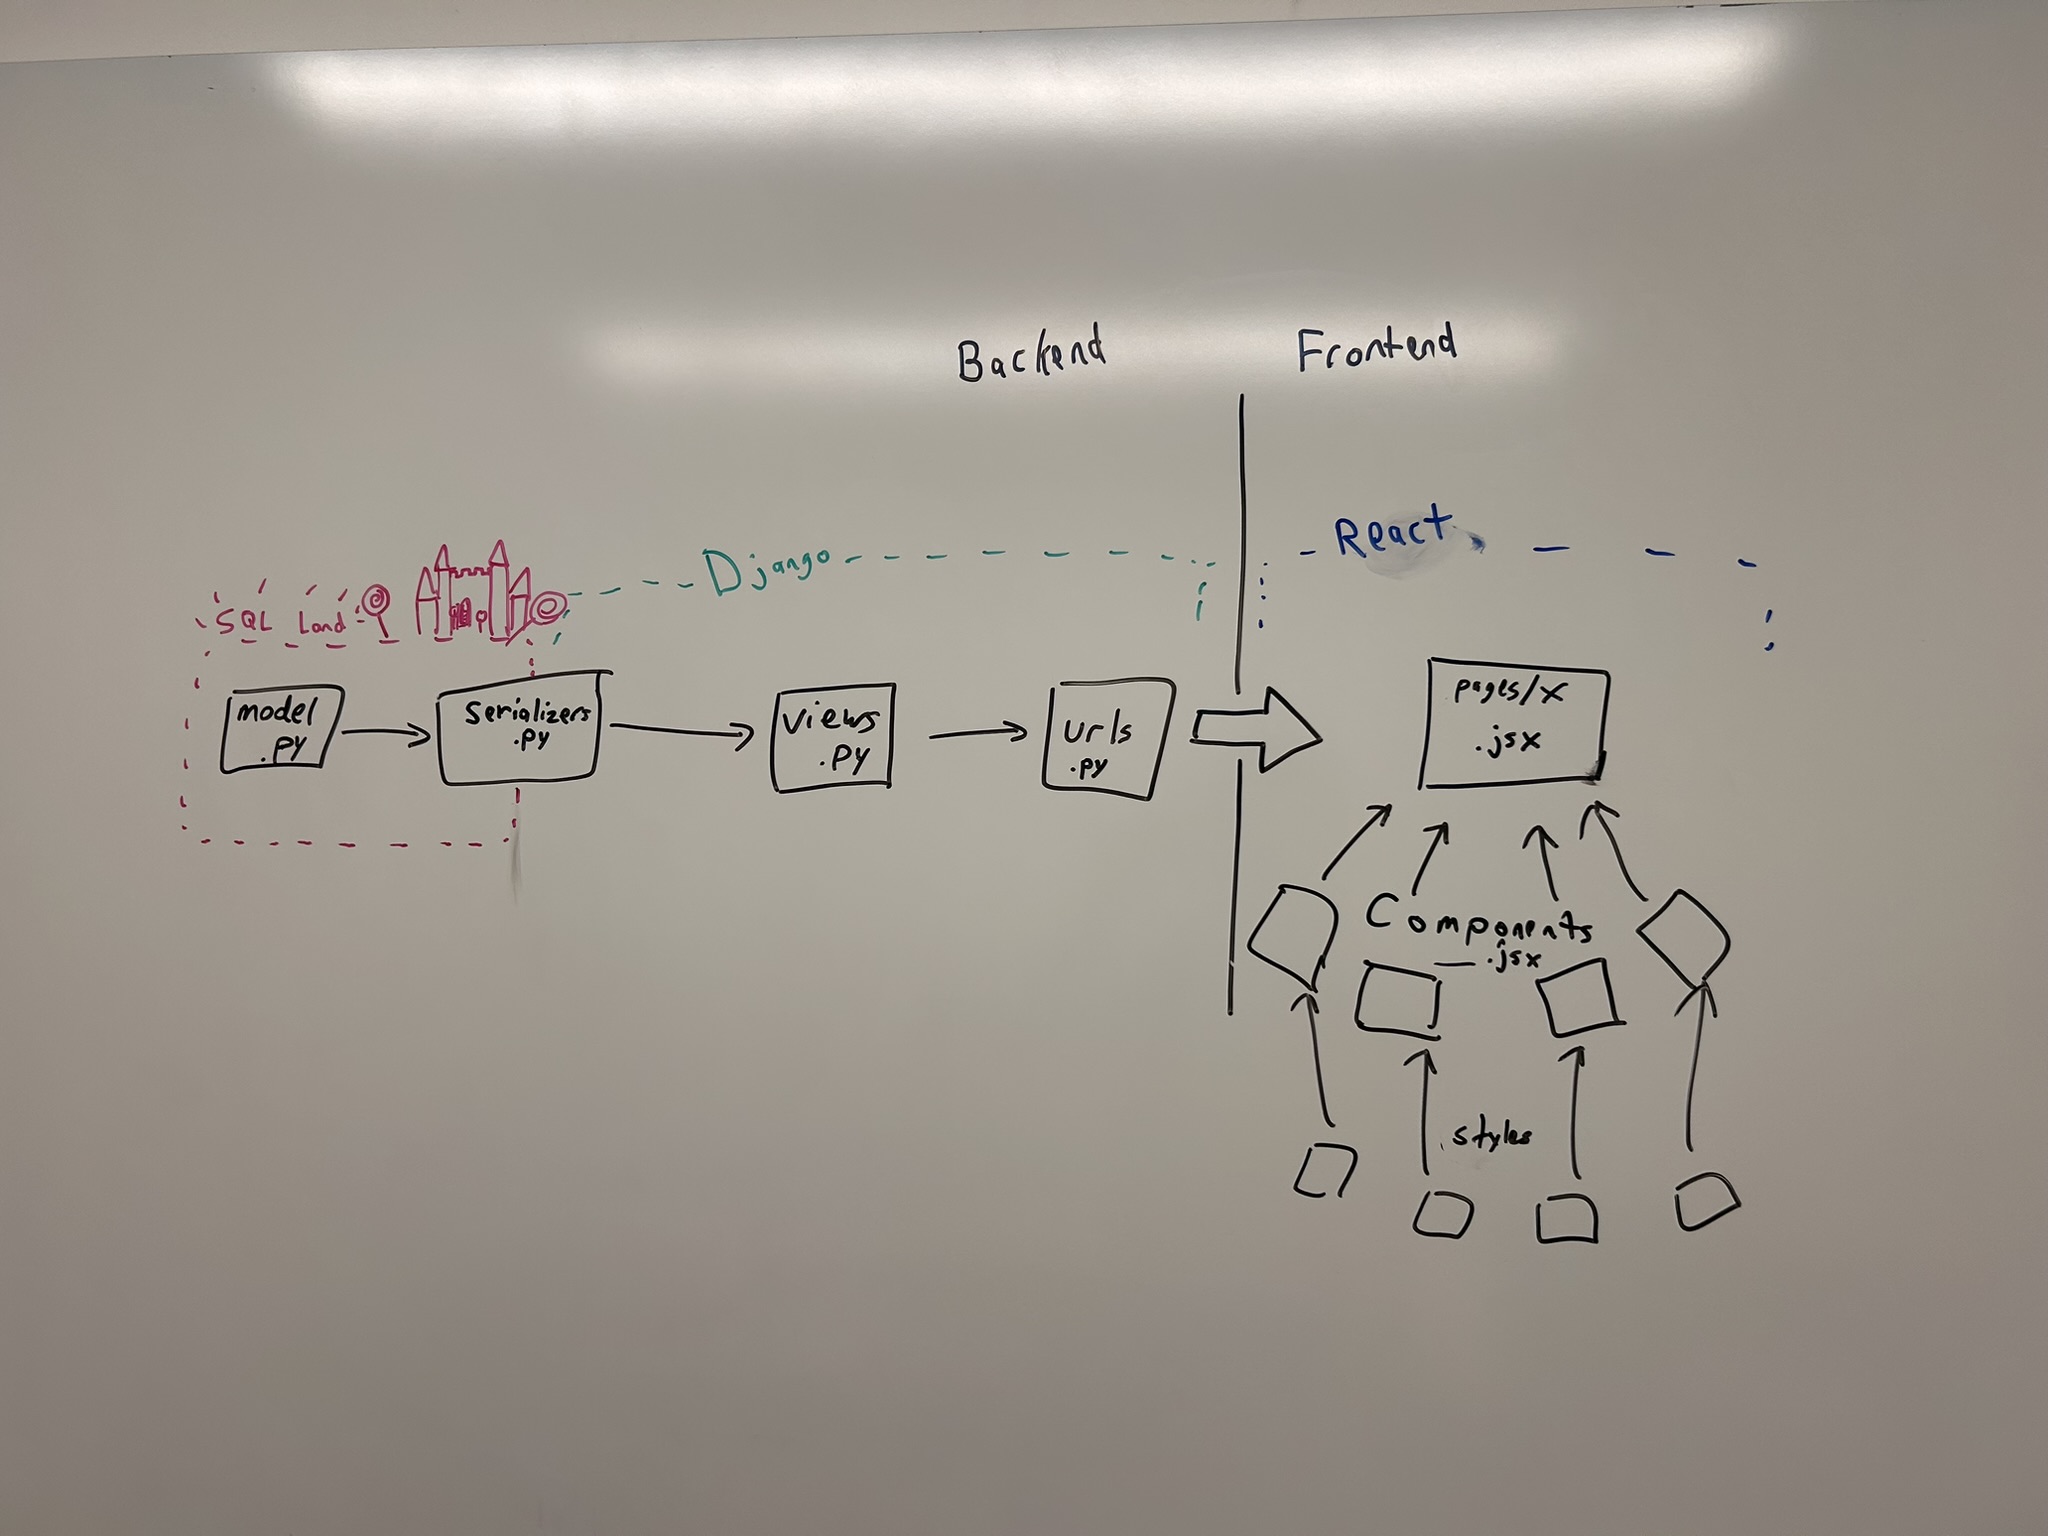 Backend
Frontend
React
Django
SQL Land
model
.py
Serializers
.py
views
.py
urls
.py
pages/x
.jsx
Components
_.jsx
styles